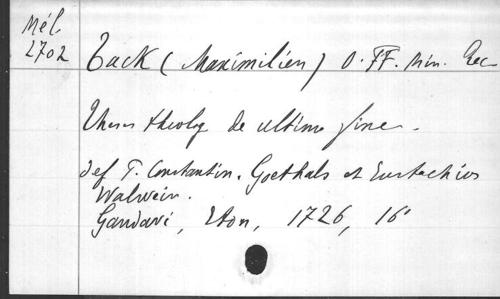 Mél.
2702
Back (Maximilien) O. FF. Min. Rec
Theses theolog de ultimo fine.
def F. Constantin. Goethals et Eustachius
Walwein.
Gandavi, Eton, 1726, 16°